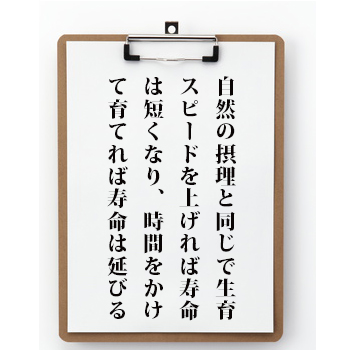 自然の摂理と同じで生育
スピードを上げれば寿命
は短くなり、時間をかけ
て育てれば寿命は延びる